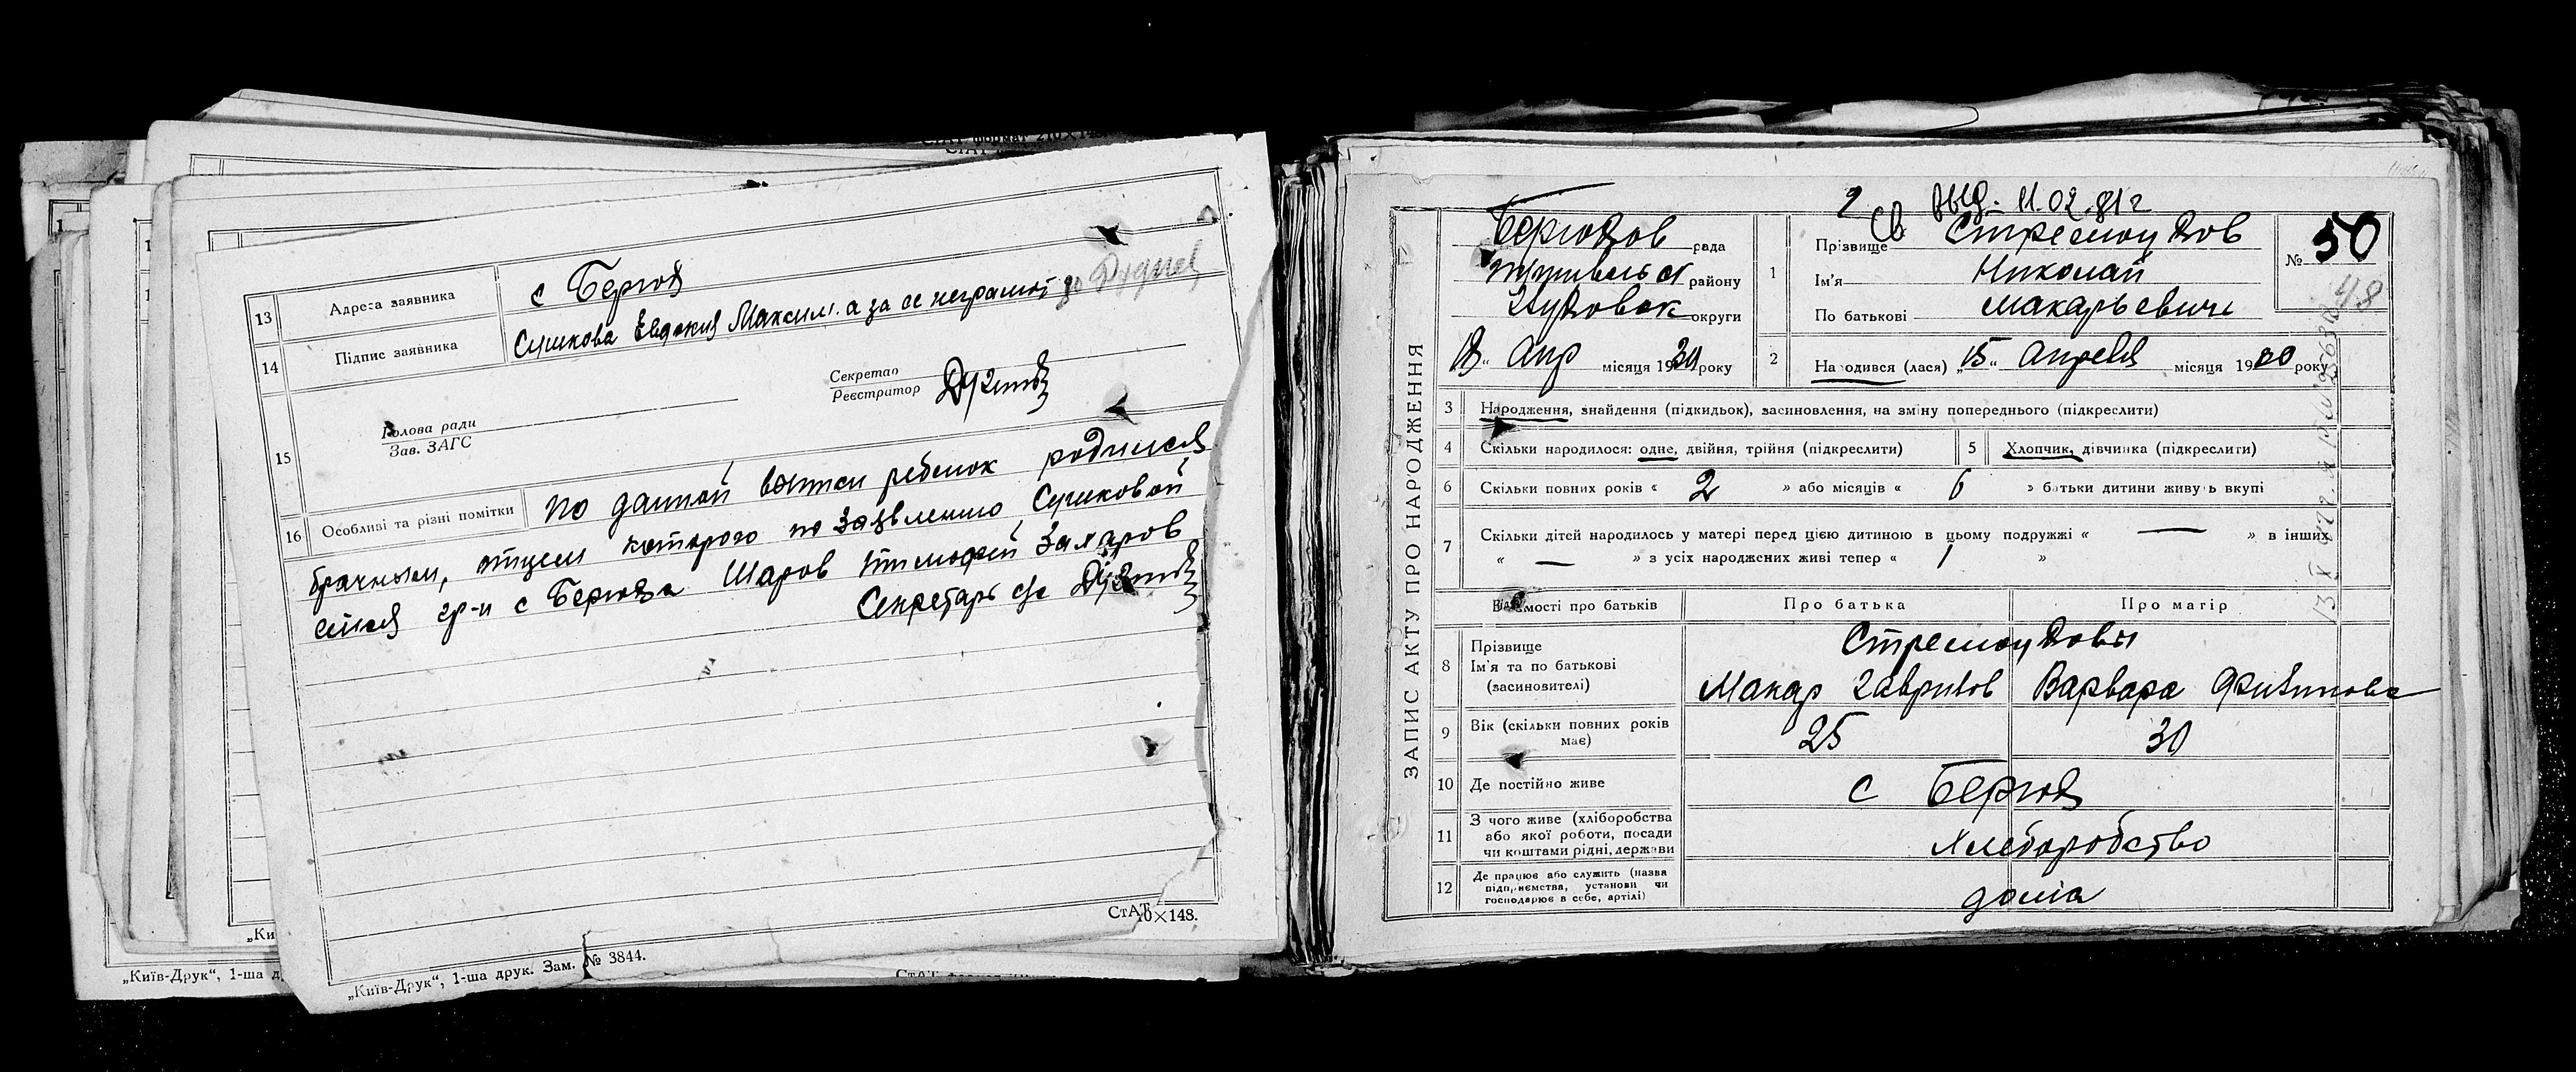 13 Адреса заявника с Берюх
14 Підпис заявника Сушкова Евдокия Максим. а за ее неграмот
15 Голова ради
Зав. ЗАГС
Секретар
Реєстратор
16 Особливі та різні помітки по данной записи ребенок родился
брачным, отцем которого по заявлению Сушковой
гр-н с Берюха Шаров Тимофей Захаров
Секретарь с/с
СтАТ 10×148.
„Київ-Друк“, 1-ша друк. Зам. № 3844.
„Київ-Друк“, 1-ша д
„Ки
ЗАПИС АКТУ ПРО НАРОДЖЕННЯ
2 св выд. 11.02.81г
Берюхов рада
Путивельск району
Глуховск округи
18 „ Апр місяця 1930 року
1 Прізвище Стремоухов
Ім'я Николай
По батькові Макарьевич
№ 50
48
2 Народився (лася) „15“ Апреля місяця 1930 року
3 Народження, знайдення (підкидьок), засиновлення, на зміну попереднього (підкреслити)
4 Скільки народилося: одне, двійня, трійня (підкреслити)
5 Хлопчик, дівчинка (підкреслити)
6 Скільки повних років « 2 » або місяців « 6 » батьки дитини живуть вкупі
7 Скільки дітей народилось у матері перед цією дитиною в цьому подружжі « — » в інших
« — » з усіх народжених живі тепер « 1 »
Відомості про батьків Про батька Про матір
8 Прізвище
Ім'я та по батькові
(засиновителі)
Стремоуховы
Макар Гаврилов Варвара Филипова
9 Вік (скільки повних років має) 25 30
10 Де постійно живе с Берюх
11 З чого живе (хліборобства
або якої роботи, посади
чи коштами рідні, держави
Хлеборобство
12 Де працює або служить (назва
підприємства, установи чи
господарює в себе, артілі)
дома